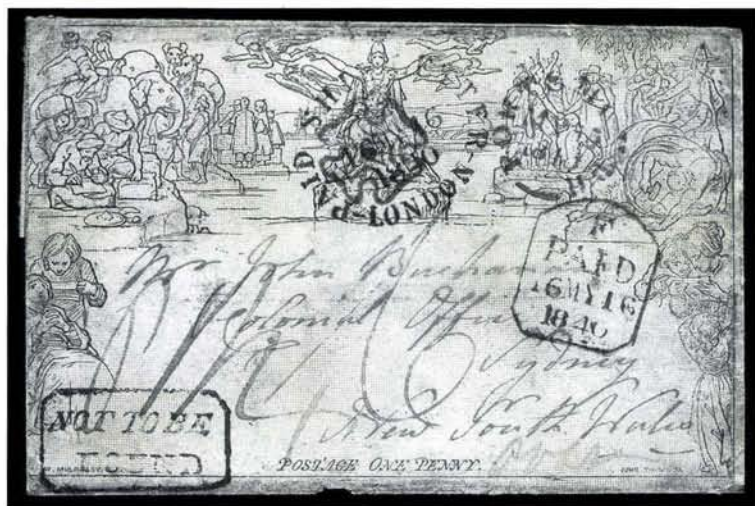 PAID SH ER-
1840
-LONDON
F
PAID
16MY16
1840
Mr John Buchanan
Colonial Office
Sydney
New South Wales
NOT TO BE
FOUND
POSTAGE ONE PENNY.